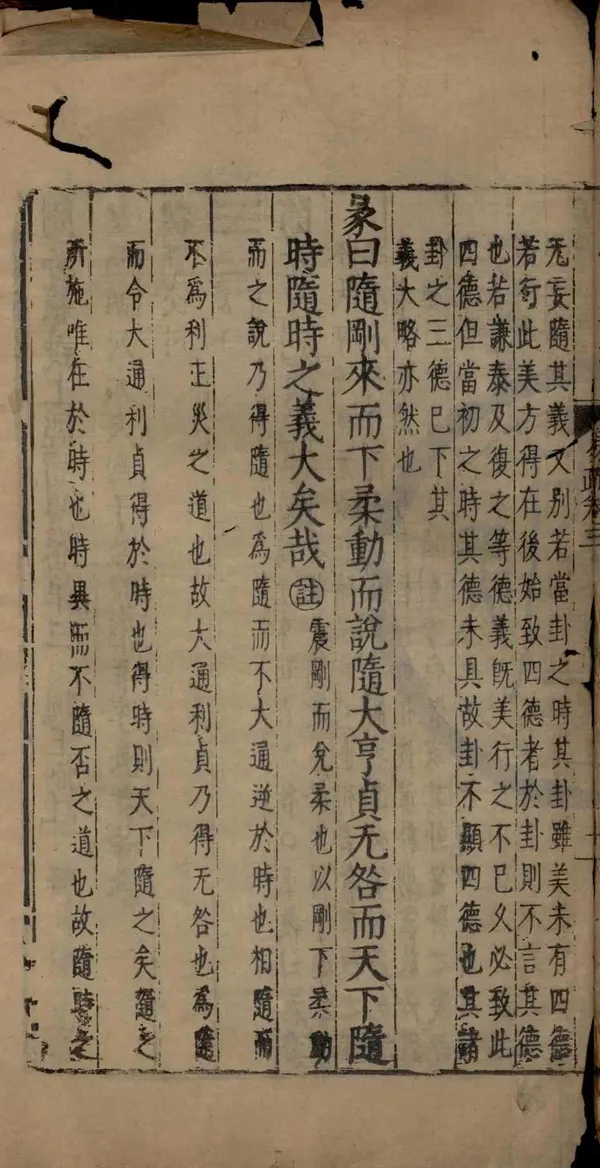 易疏卷三
无妄隨其義又別若當卦之時其卦雖美未有四德
若行此美方得在後始致四德者於卦則不言其德
也若謙泰及復之等德義既美行之不已久必致此
四德但當初之時其德未具故卦不顯四德也其諸
卦之三德已下其
義大略亦然也
彖曰隨剛來而下柔動而說隨大亨貞无咎而天下隨
時隨時之義大矣哉註震剛而兌柔也以剛下柔動
而之說乃得隨也為隨而不大通逆於時也相隨而
不為利正災之道也故大通利貞乃得无咎也為隨
而令大通利貞得於時也得時則天下隨之矣隨之
所施唯在於時也時異而不隨否之道也故隨時之